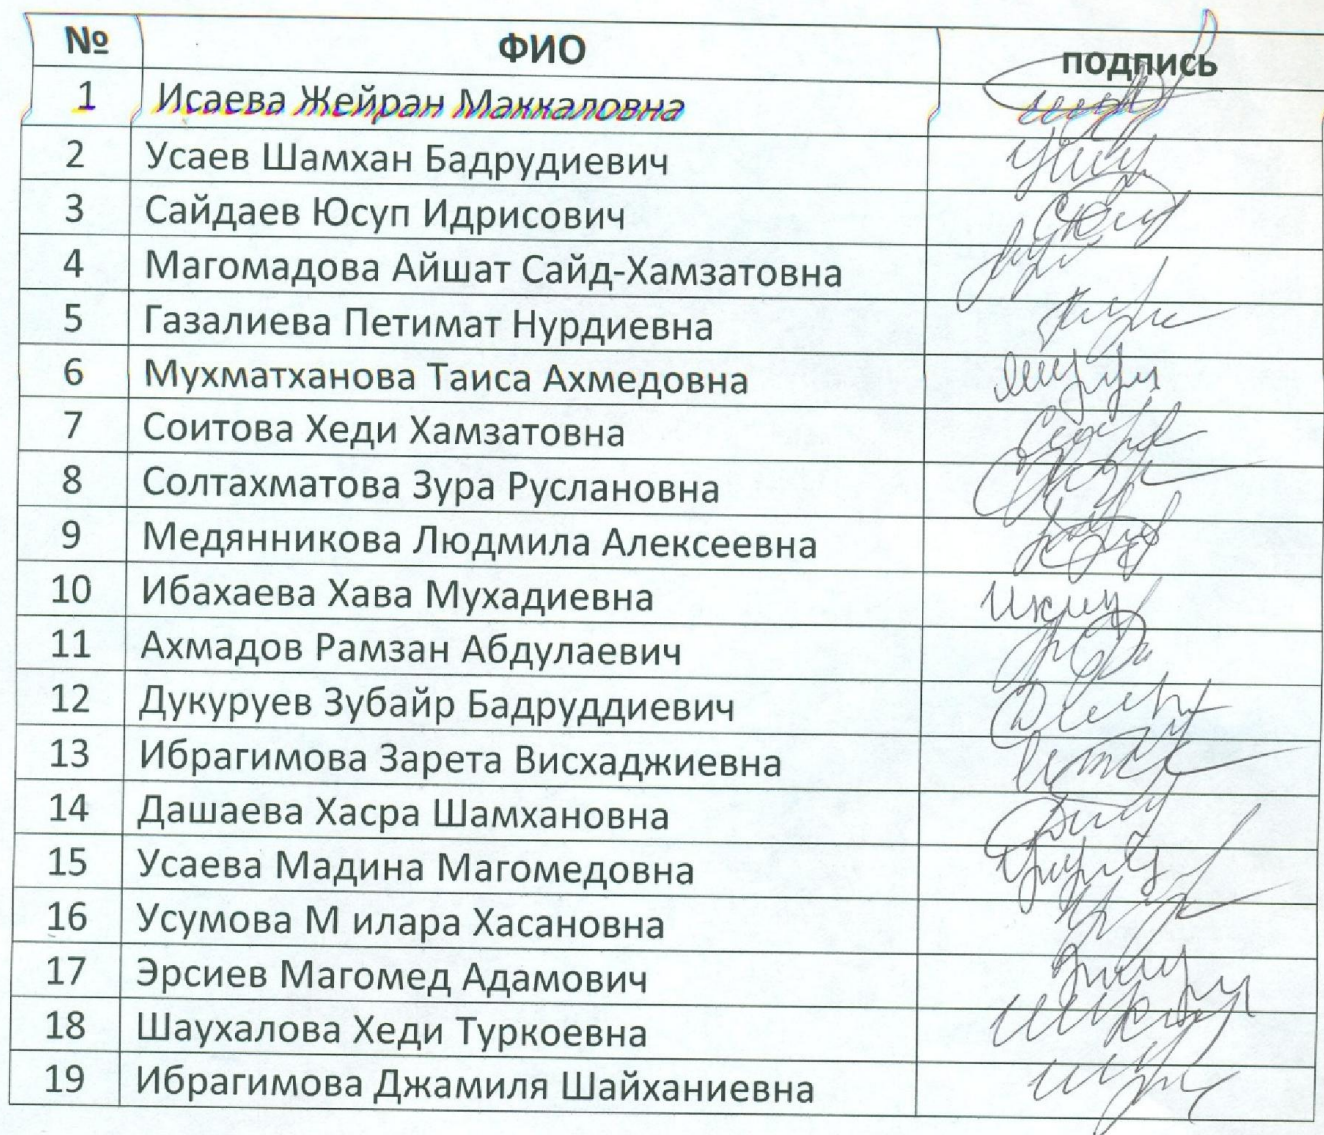 № ФИО подпись
1 Исаева Жейран Маккаловна
2 Усаев Шамхан Бадрудиевич
3 Сайдаев Юсуп Идрисович
4 Магомадова Айшат Сайд-Хамзатовна
5 Газалиева Петимат Нурдиевна
6 Мухматханова Таиса Ахмедовна
7 Соитова Хеди Хамзатовна
8 Солтахматова Зура Руслановна
9 Медянникова Людмила Алексеевна
10 Ибахаева Хава Мухадиевна
11 Ахмадов Рамзан Абдулаевич
12 Дукуруев Зубайр Бадруддиевич
13 Ибрагимова Зарета Висхаджиевна
14 Дашаева Хасра Шамхановна
15 Усаева Мадина Магомедовна
16 Усумова М илара Хасановна
17 Эрсиев Магомед Адамович
18 Шаухалова Хеди Туркоевна
19 Ибрагимова Джамиля Шайханиевна